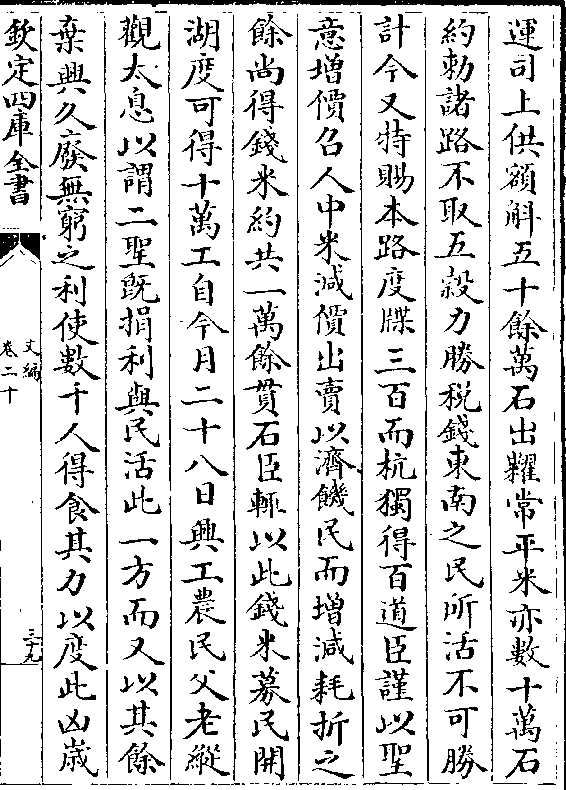 運司上供額斛五十餘萬石出糶常平米亦數十萬石
約勅諸路不取五穀力勝税錢東南之民所活不可勝
計今又特賜本路度牒三百而杭獨得百道臣謹以聖
意増價召人中米減價出賣以濟饑民而増減耗折之
餘尚得錢米約共一萬餘貫石臣輒以此錢米募民開
湖度可得十萬工自今月二十八日興工農民父老縱
觀太息以謂二聖既捐利與民活此一方而又以其餘
棄興久廢無窮之利使數千人得食其力以度此凶歳
欽定四庫全書
文編
卷二十
三十九